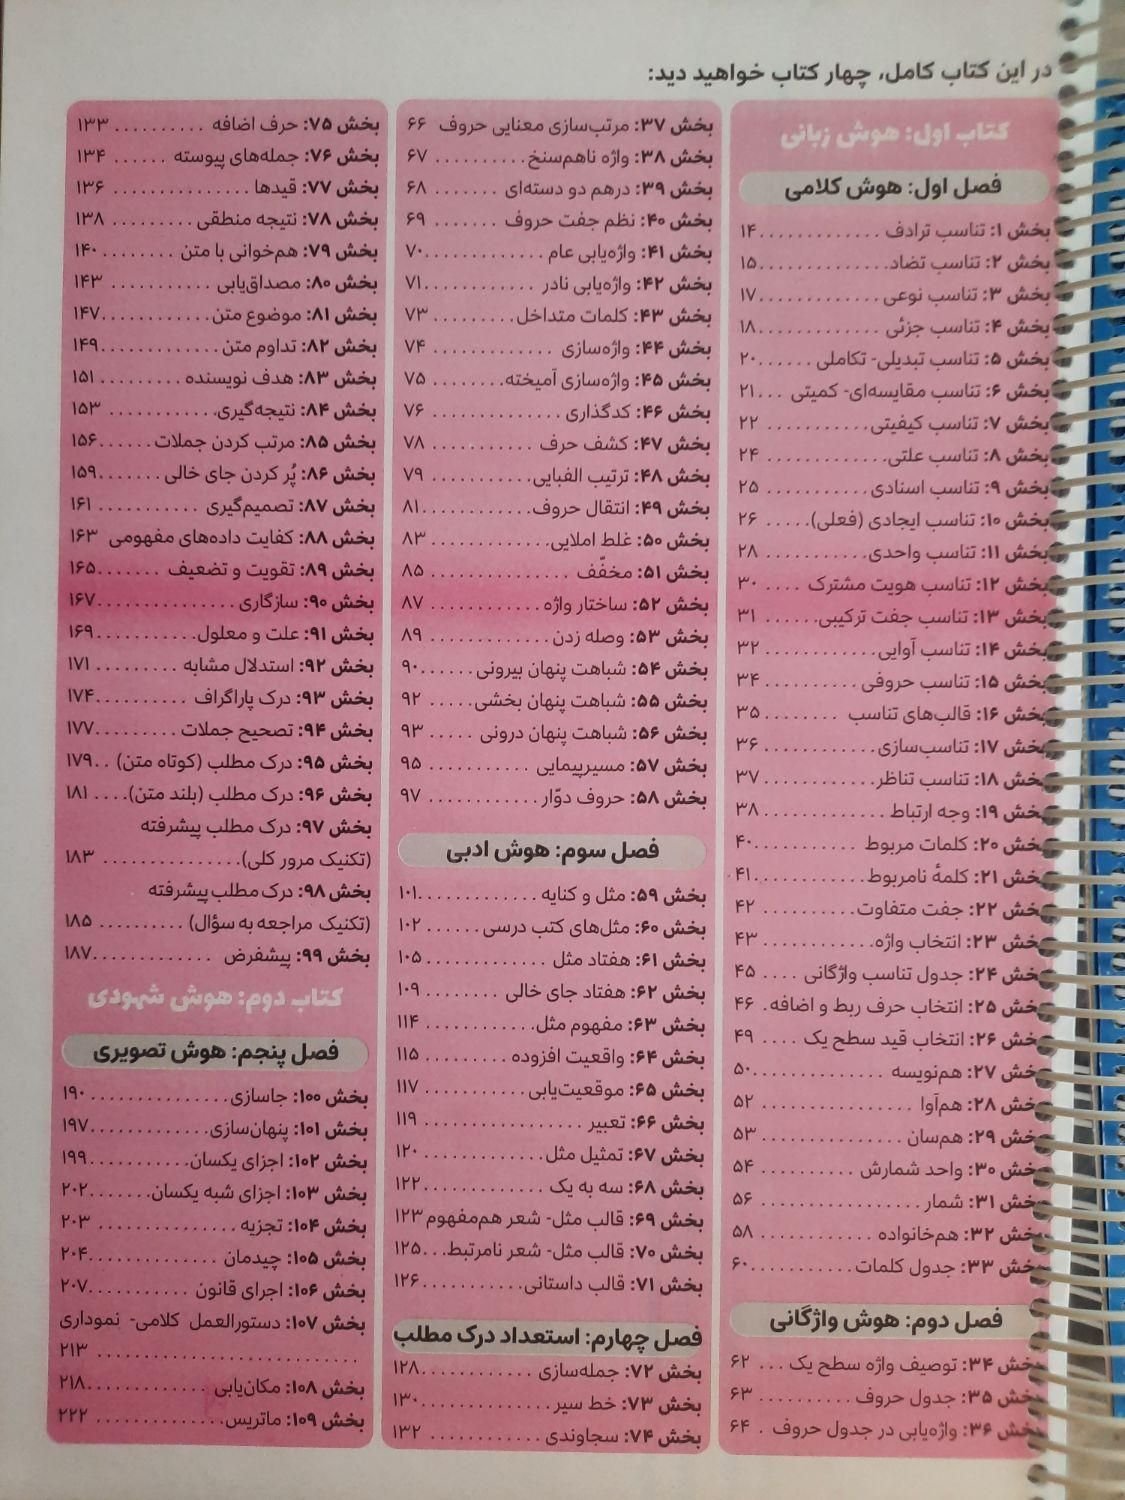 در این کتاب کامل، چهار کتاب خواهید دید:
کتاب اول: هوش زبانی
فصل اول: هوش کلامی
بخش ۱: تناسب ترادف ............. ۱۴
بخش ۲: تناسب تضاد .............. ۱۵
بخش ۳: تناسب نوعی ............. ۱۷
بخش ۴: تناسب جزئی ............. ۱۸
بخش ۵: تناسب تبدیلی- تکاملی ...... ۲۰
بخش ۶: تناسب مقایسه‌ای- کمیتی ... ۲۱
بخش ۷: تناسب کیفیتی ............ ۲۲
بخش ۸: تناسب علتی ............. ۲۴
بخش ۹: تناسب اسنادی ........... ۲۵
بخش ۱۰: تناسب ایجادی (فعلی) ..... ۲۶
بخش ۱۱: تناسب واحدی ........... ۲۸
بخش ۱۲: تناسب هویت مشترک .... ۳۰
بخش ۱۳: تناسب جفت ترکیبی ...... ۳۱
بخش ۱۴: تناسب آوایی ............ ۳۲
بخش ۱۵: تناسب حروفی .......... ۳۴
بخش ۱۶: قالب‌های تناسب ........ ۳۵
بخش ۱۷: تناسب‌سازی ............ ۳۶
بخش ۱۸: تناسب تناظر ............ ۳۷
بخش ۱۹: وجه ارتباط ............. ۳۸
بخش ۲۰: کلمات مربوط ........... ۴۰
بخش ۲۱: کلمهٔ نامربوط ............ ۴۱
بخش ۲۲: جفت متفاوت ........... ۴۲
بخش ۲۳: انتخاب واژه ............ ۴۳
بخش ۲۴: جدول تناسب واژگانی .... ۴۵
بخش ۲۵: انتخاب حرف ربط و اضافه . ۴۶
بخش ۲۶: انتخاب قید سطح یک .... ۴۹
بخش ۲۷: هم‌نویسه .............. ۵۰
بخش ۲۸: هم‌آوا ................ ۵۲
بخش ۲۹: هم‌سان ............... ۵۳
بخش ۳۰: واحد شمارش .......... ۵۴
بخش ۳۱: شمار ................. ۵۶
بخش ۳۲: هم‌خانواده ............. ۵۸
بخش ۳۳: جدول کلمات ........... ۶۰
فصل دوم: هوش واژگانی
بخش ۳۴: توصیف واژه سطح یک ... ۶۲
بخش ۳۵: جدول حروف .......... ۶۳
بخش ۳۶: واژه‌یابی در جدول حروف . ۶۴
بخش ۳۷: مرتب‌سازی معنایی حروف ۶۶
بخش ۳۸: واژه ناهم‌سنخ .......... ۶۷
بخش ۳۹: درهم دو دسته‌ای ....... ۶۸
بخش ۴۰: نظم جفت حروف ....... ۶۹
بخش ۴۱: واژه‌یابی عام ............. ۷۰
بخش ۴۲: واژه‌یابی نادر ............ ۷۱
بخش ۴۳: کلمات متداخل ......... ۷۳
بخش ۴۴: واژه‌سازی ............. ۷۴
بخش ۴۵: واژه‌سازی آمیخته ........ ۷۵
بخش ۴۶: کدگذاری .............. ۷۶
بخش ۴۷: کشف حرف ........... ۷۸
بخش ۴۸: ترتیب الفبایی ........... ۷۹
بخش ۴۹: انتقال حروف ........... ۸۱
بخش ۵۰: غلط املایی ............ ۸۳
بخش ۵۱: مخفّف ............... ۸۵
بخش ۵۲: ساختار واژه ............ ۸۷
بخش ۵۳: وصله زدن ............. ۸۹
بخش ۵۴: شباهت پنهان بیرونی ...... ۹۰
بخش ۵۵: شباهت پنهان بخشی ..... ۹۲
بخش ۵۶: شباهت پنهان درونی ..... ۹۳
بخش ۵۷: مسیرپیمایی ........... ۹۵
بخش ۵۸: حروف دوّار ............ ۹۷
فصل سوم: هوش ادبی
بخش ۵۹: مثل و کنایه ............. ۱۰۱
بخش ۶۰: مثل‌های کتب درسی ...... ۱۰۲
بخش ۶۱: هفتاد مثل ............. ۱۰۵
بخش ۶۲: هفتاد جای خالی ........ ۱۰۹
بخش ۶۳: مفهوم مثل ............ ۱۱۴
بخش ۶۴: واقعیت افزوده ......... ۱۱۵
بخش ۶۵: موقعیت‌یابی ........... ۱۱۷
بخش ۶۶: تعبیر ................ ۱۱۹
بخش ۶۷: تمثیل مثل ............. ۱۲۰
بخش ۶۸: سه به یک ............. ۱۲۲
بخش ۶۹: قالب مثل- شعر هم‌مفهوم ۱۲۳
بخش ۷۰: قالب مثل- شعر نامرتبط ... ۱۲۵
بخش ۷۱: قالب داستانی ........... ۱۲۶
فصل چهارم: استعداد درک مطلب
بخش ۷۲: جمله‌سازی ............ ۱۲۸
بخش ۷۳: خط سیر .............. ۱۳۰
بخش ۷۴: سجاوندی ............ ۱۳۲
بخش ۷۵: حرف اضافه .......... ۱۳۳
بخش ۷۶: جمله‌های پیوسته ...... ۱۳۴
بخش ۷۷: قیدها ............... ۱۳۶
بخش ۷۸: نتیجه منطقی ......... ۱۳۸
بخش ۷۹: هم‌خوانی با متن ........ ۱۴۰
بخش ۸۰: مصداق‌یابی ........... ۱۴۳
بخش ۸۱: موضوع متن ............ ۱۴۷
بخش ۸۲: تداوم متن ............. ۱۴۹
بخش ۸۳: هدف نویسنده ......... ۱۵۱
بخش ۸۴: نتیجه‌گیری ............ ۱۵۳
بخش ۸۵: مرتب کردن جملات ...... ۱۵۶
بخش ۸۶: پُر کردن جای خالی ....... ۱۵۹
بخش ۸۷: تصمیم‌گیری .......... ۱۶۱
بخش ۸۸: کفایت داده‌های مفهومی ۱۶۳
بخش ۸۹: تقویت و تضعیف ....... ۱۶۵
بخش ۹۰: سازگاری ............... ۱۶۷
بخش ۹۱: علت و معلول ........... ۱۶۹
بخش ۹۲: استدلال مشابه ......... ۱۷۱
بخش ۹۳: درک پاراگراف .......... ۱۷۴
بخش ۹۴: تصحیح جملات ......... ۱۷۷
بخش ۹۵: درک مطلب (کوتاه متن) .. ۱۷۹
بخش ۹۶: درک مطلب (بلند متن) .... ۱۸۱
بخش ۹۷: درک مطلب پیشرفته
(تکنیک مرور کلی) ............... ۱۸۳
بخش ۹۸: درک مطلب پیشرفته
(تکنیک مراجعه به سؤال) .......... ۱۸۵
بخش ۹۹: پیشفرض ............. ۱۸۷
کتاب دوم: هوش شهودی
فصل پنجم: هوش تصویری
بخش ۱۰۰: جاسازی .............. ۱۹۰
بخش ۱۰۱: پنهان‌سازی ............ ۱۹۷
بخش ۱۰۲: اجزای یکسان ........... ۱۹۹
بخش ۱۰۳: اجزای شبه یکسان ....... ۲۰۲
بخش ۱۰۴: تجزیه ............... ۲۰۳
بخش ۱۰۵: چیدمان .............. ۲۰۴
بخش ۱۰۶: اجرای قانون ........... ۲۰۷
بخش ۱۰۷: دستورالعمل کلامی- نموداری
............................ ۲۱۳
بخش ۱۰۸: مکان‌یابی ............. ۲۱۸
بخش ۱۰۹: ماتریس .............. ۲۲۲